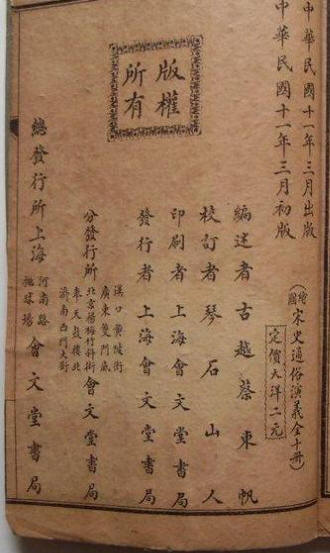 中華民國十一年三月出版
中華民國十一年三月初版
繪圖宋史通俗演義全十冊
定價大洋二元
編述者古越蔡東帆
校訂者琴石山人
印刷者上海會文堂書局
發行者上海會文堂書局
版權所有
分發行所
漢口黃陂街
廣東雙門底
北京楊梅竹斜街
奉天鼓樓北
濟南西門大街
會文堂書局
總發行所上海
河南路
拋球場
會文堂書局